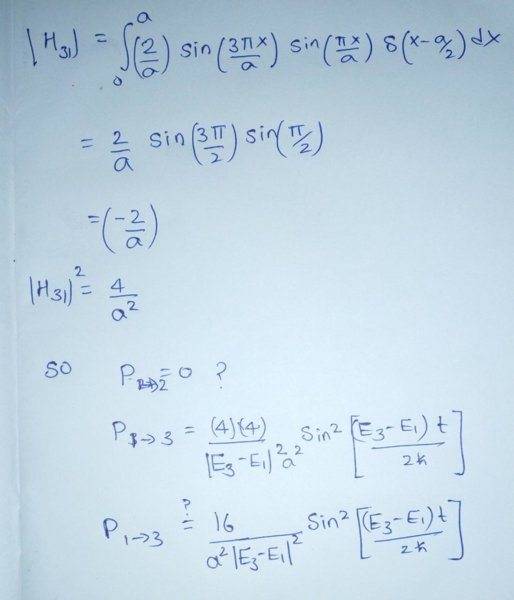 |H₃₁| = ∫₀ᵃ (2/a) sin(3πx/a) sin(πx/a) δ(x-a/2) dx
= 2/a sin(3π/2) sin(π/2)
= (-2/a)
|H₃₁|² = 4/a²
so P₁→₂ = 0 ?
P₁→₃ = (4)(4)/|E₃-E₁|²a² Sin² [(E₃-E₁)t/2ħ]
P₁→₃ ?= 16/a²|E₃-E₁|² Sin² [(E₃-E₁)t/2ħ]